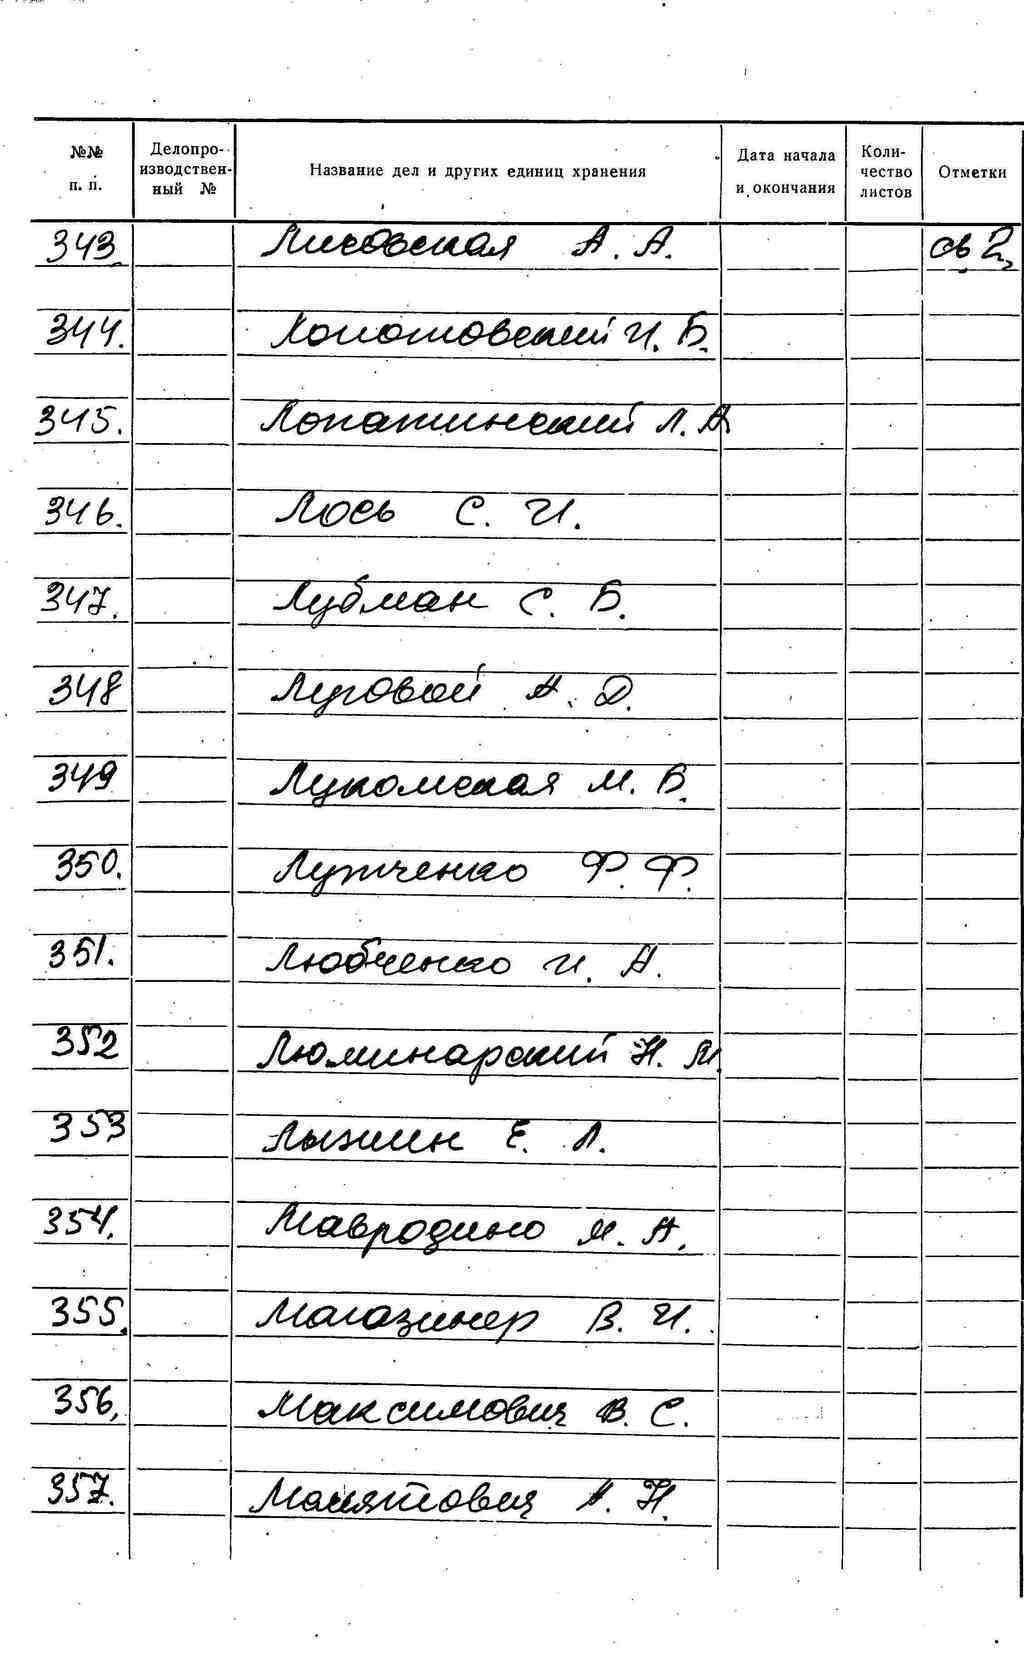 №№ п. п. Делопроизводственный № Название дел и других единиц хранения Дата начала и окончания Количество листов Отметки
343. Лисовская А. А. св 2
344. Лопотовский И. Б.
345. Лопатинский Л. А
346. Лось С. И.
347. Лубман С. Б.
348 Луговой А. Д.
349 Лукомская М. В.
350. Лутченко Ф. Ф.
351. Любченко И. А.
352 Люминарский Н. М.
353 Лызлин Е. Л.
354. Мавродино М. А.
355. Магазинер В. И.
356. Максимович В. С.
357. А. Н.